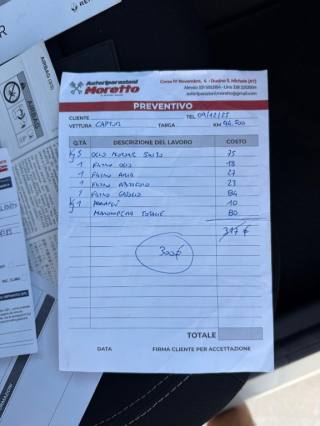 RENAULT
AIRBAG
Autoriparazioni
Moretto
Corso IV Novembre, 4 - Dusino S. Michele (AT)
PREVENTIVO
CLIENTE TEL. 09/12/25
VETTURA CAPTUR TARGA KM. 94.500
Q.TÀ DESCRIZIONE DEL LAVORO COSTO
Kg 5 OLIO MOTORE 5W30 75
1 FILTRO OLIO 18
1 FILTRO ARIA 27
1 FILTRO ABITACOLO 23
1 FILTRO GASOLIO 84
Kg 1 10
MANODOPERA TOTALE 80
317 €
300 €
TOTALE
DATA FIRMA CLIENTE PER ACCETTAZIONE